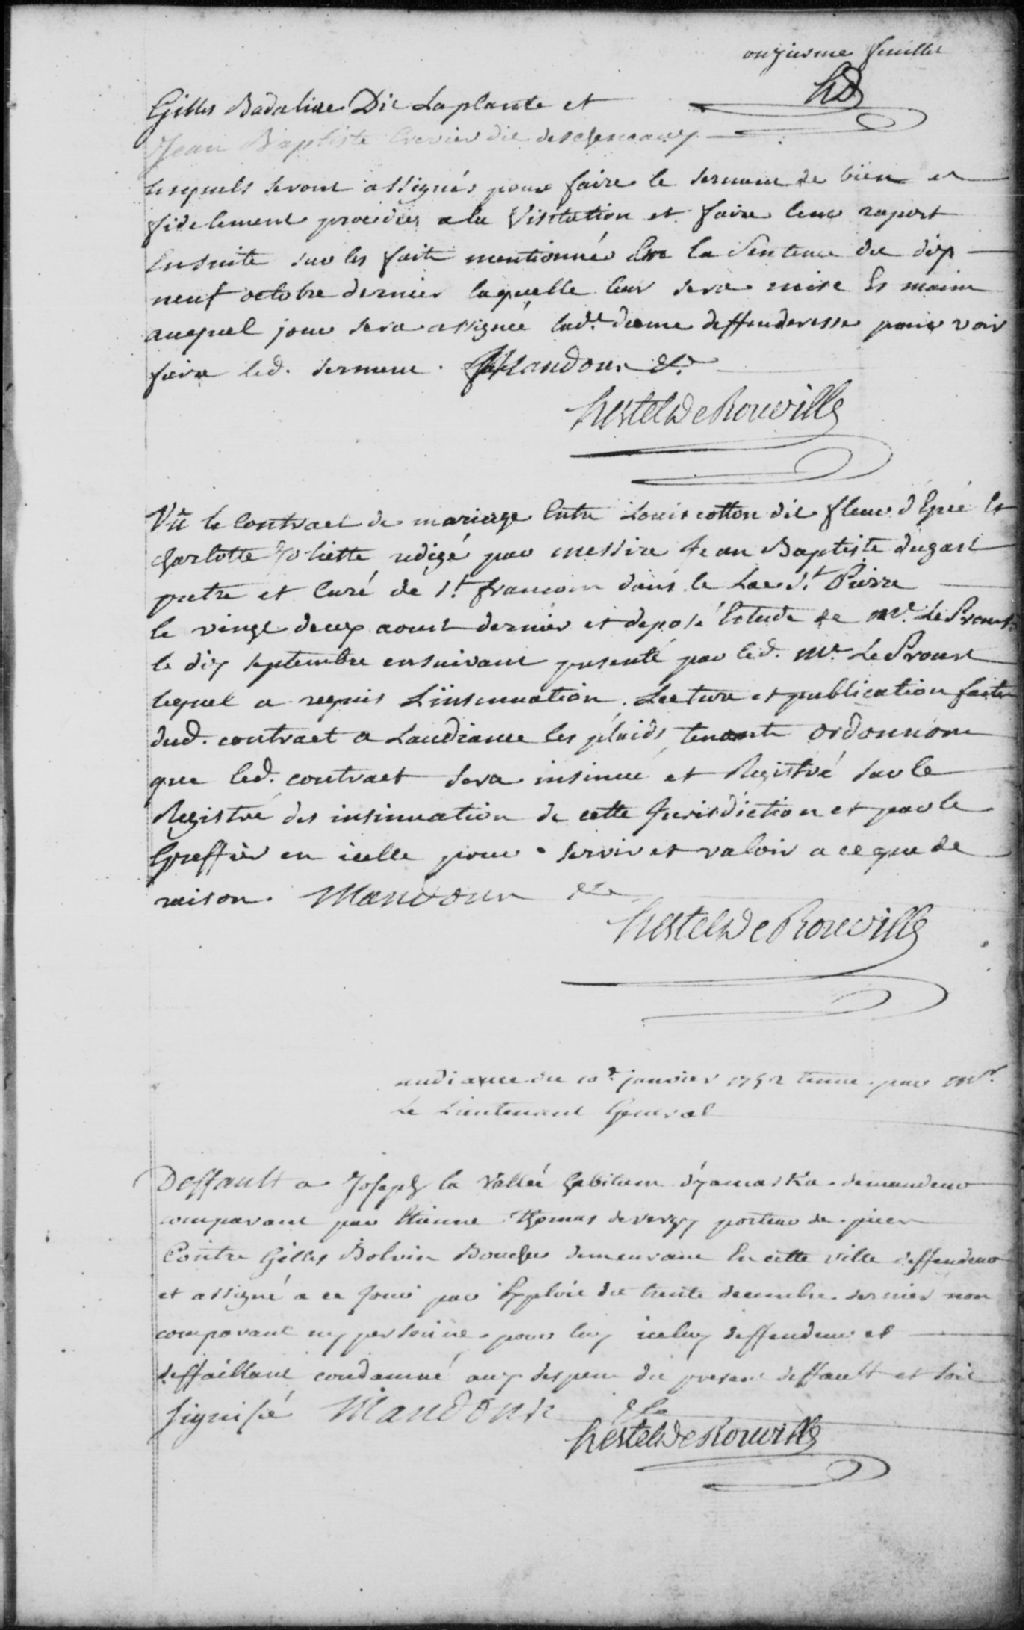 onziesme feuillet
HD
Gilles Badaliac Dit Laplante et
Jean Baptiste Crevier dit descheneaux
lesquels seront assignés pour faire le serment de bien et
fidelement proceder a la Visitation et faire leur raport
Ensuite sur les faits mentionnés En la Sentence du dix
neuf octobre dernier laquelle leur sera mise Es mains
auquel jour sera assignée lad.e dame deffenderesse pour voir
faire led. serment. Mandons &a
hertel De Rouville
Vû le Contract de mariage Entre Louis cotton dit fleur d'Epée Et
Charlotte Joliette redigé par messire Jean Baptiste dugast
pretre et Curé de St. francois dans le Lac St. Pierre
le vingt deux aoust dernier et deposé Estude de Me. Le Proust
le dix septembre ensuivant presenté par led. Me. Le Proust
lequel a requis L'insinuation. Lecture et publication faite
dud. contract a Laudiance les plaids tenants ordonnons
que led. contract sera insinué et Registré sur le
Registre des insinuation de cette Jurisdiction et par le
Greffier en icelle pour servir et valoir a ce que de
raison. Mandons &ca
hertel De Rouville
audiance du 10e janvier 1752 tenue par Mr.
Le Lieutenant General
Deffault a Joseph la Vallée habitant d'yamaska demandeur
comparant par Etienne Thomas deverger porteur de pieces
Contre Gilles Bolvin Boucher demeurant En cette ville deffendeur
et assigné a ce jour par Exploit du trente decembre dernier non
comparant ny personne pour luy iceluy deffendeur et
deffaillant condamné aux despens du present deffault et soit
signifié Mandons &a
hertel De Rouville